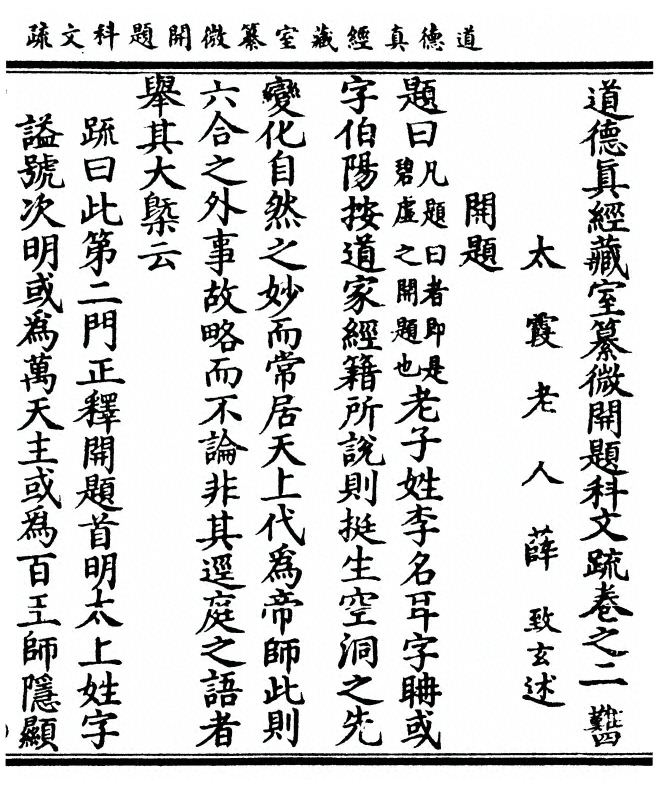 道德真經藏室纂微開題科文疏
道德真經藏室纂微開題科文疏卷之二 難四
太霞老人薛致玄述
開題
題曰凡題曰者即是碧虛之開題也老子姓李名耳字聃或
字伯陽按道家經籍所說則挺生空洞之先
變化自然之妙而常居天上代為帝師此則
六合之外事故略而不論非其逕庭之語者
舉其大槩云
疏曰此第二門正釋開題首明太上姓字
謚號次明或為萬天主或為百王師隱顯